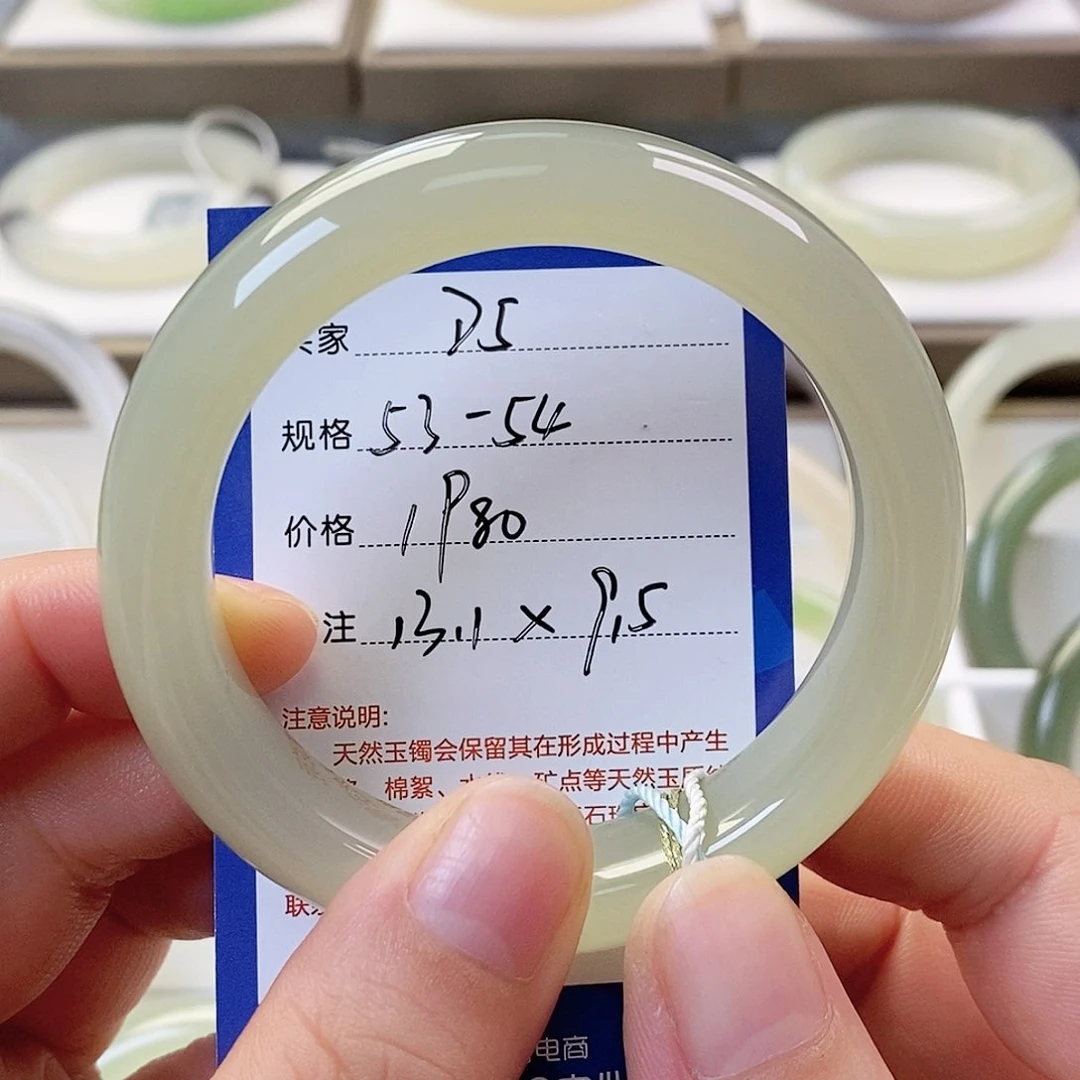 家 D5
规格 53-54
价格 1980
注 13.1 × 9.5
注意说明:
天然玉镯会保留其在形成过程中产生
棉絮、水 矿点等天然玉
石
联
电商